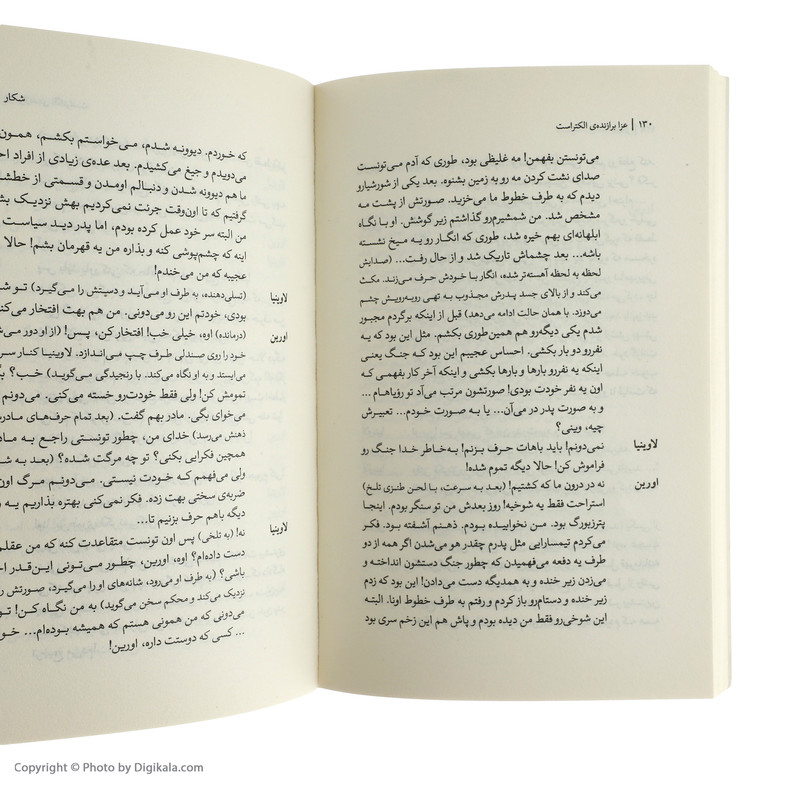 ۱۳۰ | عزا برازنده‌ی الکتراست
می‌تونستن بفهمن! مه غلیظی بود، طوری که آدم می‌تونست
صدای نشت کردن مه رو به زمین بشنوه. بعد یکی از شورشیارو
دیدم که به طرف خطوط ما می‌خزید. صورتش از پشت مه
مشخص شد. من شمشیرم‌رو گذاشتم زیر گوشش. او با نگاه
ابلهانه‌ای بهم خیره شد، طوری که انگار رو یه میخ نشسته
باشه... بعد چشماش تاریک شد و از حال رفت... (صدایش
لحظه به لحظه آهسته‌تر شده، انگار با خودش حرف می‌زند. مکث
می‌کند و از بالای جسد پدرش مجذوب به تهی روبه‌رویش چشم
می‌دوزد. با همان حالت ادامه می‌دهد) قبل از اینکه برگردم مجبور
شدم یکی دیگه‌رو هم همین‌طوری بکشم. مثل این بود که یه
نفررو دو بار بکشی. احساس عجیبم این بود که جنگ یعنی
اینکه یه نفررو بارها و بارها بکشی و اینکه آخر کار بفهمی که
اون یه نفر خودت بودی! صورتشون مرتب می‌آد تو رؤیاهام ...
و به صورت پدر در می‌آن... یا به صورت خودم... تعبیرش
چیه، وینی؟
لاوینیا نمی‌دونم! باید باهات حرف بزنم! به‌خاطر خدا جنگ رو
فراموش کن! حالا دیگه تموم شده!
اورین نه در درون ما که کشتیم! (بعد به سرعت، با لحن طنزی تلخ)
استراحت فقط یه شوخیه! روز بعدش من تو سنگر بودم. اینجا
پترزبورگ بود. من نخوابیده بودم. ذهنم آشفته بود. فکر
می‌کردم تیمسارایی مثل پدرم چقدر هو می‌شدن اگر همه از دو
طرف یه دفعه می‌فهمیدن که چطور جنگ دستشون انداخته و
می‌زدن زیر خنده و به همدیگه دست می‌دادن! این بود که زدم
زیر خنده و دستام‌رو باز کردم و رفتم به طرف خطوط اونا. البته
این شوخی‌رو فقط من دیده بودم و پاش هم این زخم سری بود
شکار
که خوردم. دیوونه شدم، می‌خواستم بکشم، همون
می‌دویدم و جیغ می‌کشیدم. بعد عده‌ی زیادی از افراد
ما هم دیوونه شدن و دنبالم اومدن و قسمتی از
گرفتیم که تا اون‌وقت جرئت نمی‌کردیم بهش نزدیک
من البته سر خود عمل کرده بودم، اما پدر دید سیاست
اینه که چشم‌پوشی کنه و بذاره من یه قهرمان بشم! حالا
عجیبه که من می‌خندم!
لاوینیا (تسلی‌دهنده، به طرف او می‌آید و دستش را می‌گیرد) تو
بودی، خودتم این رو می‌دونی. من هم بهت افتخار
اورین (درمانده) اوه، خیلی خب! افتخار کن، پس! (از او دور
خود را روی صندلی طرف چپ می‌اندازد. لاوینیا کنار
می‌ایستد و به او نگاه می‌کند. با رنجیدگی می‌گوید) خب؟
تمومش کن! ولی فقط خودت‌رو خسته می‌کنی. می‌دونم
می‌خوای بگی. مادر بهم گفت. (بعد تمام حرف‌های
ذهنش می‌رسد) خدای من، چطور تونستی راجع به
همچین فکرایی بکنی؟ تو چه مرگت شده؟ (بعد به
ولی می‌فهمم که خودت نیستی. می‌دونم مرگ اون
ضربه‌ی سختی بهت زده. فکر نمی‌کنی بهتره بذاریم
دیگه باهم حرف بزنیم تا...
لاوینیا نه! (به تلخی) پس اون تونست متقاعدت کنه که من
دست داده‌ام؟ اوه، اورین، چطور می‌تونی این‌قدر
باشی؟ (به طرف او می‌رود، شانه‌های او را می‌گیرد، صورتش
نزدیک می‌کند و محکم سخن می‌گوید) به من نگاه کن!
می‌دونی که من همونی هستم که همیشه بوده‌ام...
... کسی که دوستت داره، اورین!
Copyright © Photo by Digikala.com